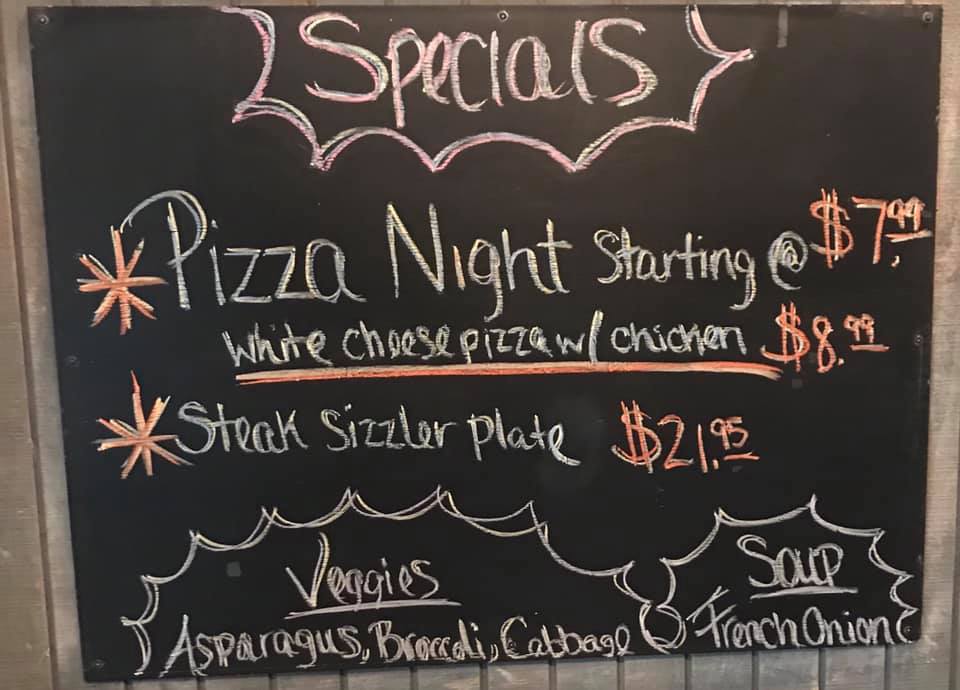 Specials
* Pizza Night Starting @ $7.99
white cheese pizza w/ chicken $8.99
* Steak Sizzler Plate $21.95
Veggies
Asparagus, Broccoli, Cabbage
Soup
French Onion